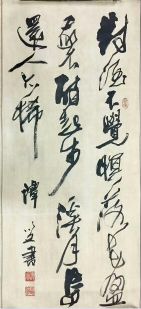 對酒不覺暝落花盈
我衣醉起步溪月鳥
還人亦稀
書